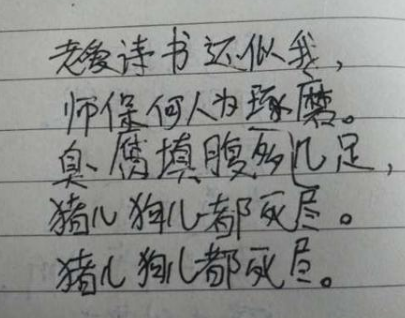 老爱诗书还似我，
师保何人为琢磨。
臭腐填腹多几足，
猪儿狗儿都死尽。
猪儿狗儿都死尽。